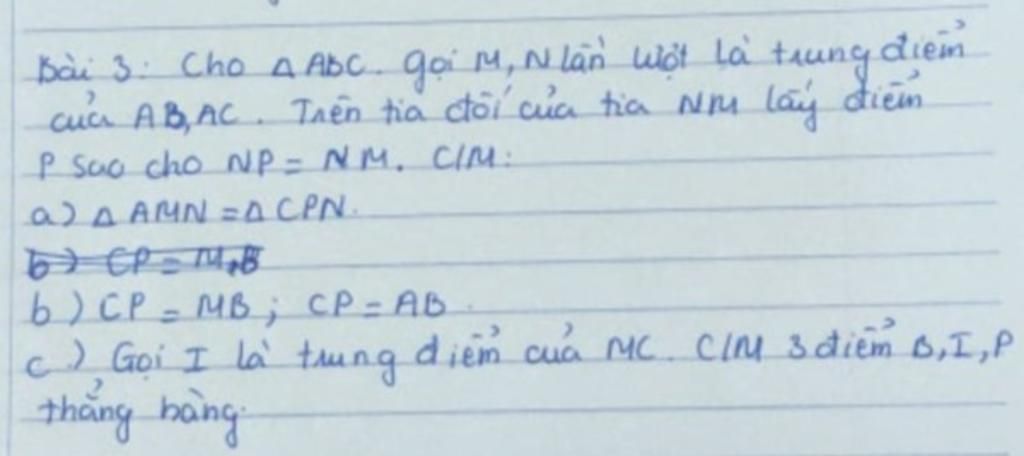 Bài 3: Cho △ ABC. Gọi M, N lần lượt là trung điểm
của AB, AC. Trên tia đối của tia NM lấy điểm
P sao cho NP = NM. C/M:
a) △ AMN = △ CPN.
b) CP = MB
b) CP = MB; CP = AB.
c) Gọi I là trung điểm của MC. C/M 3 điểm B, I, P
thẳng hàng.